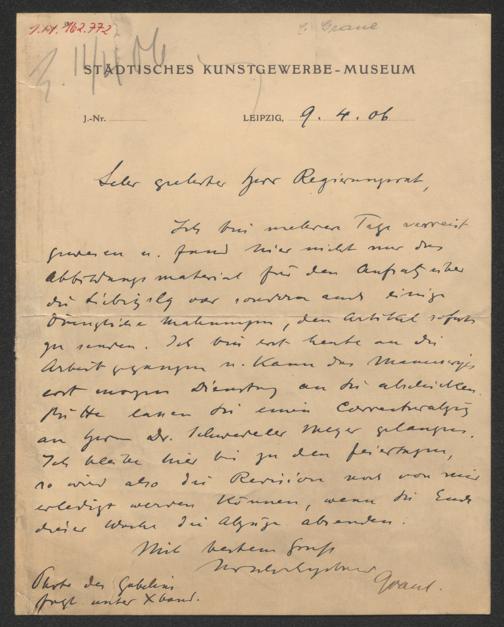 I.N. 962.772
G. Graul
STÄDTISCHES KUNSTGEWERBE-MUSEUM
J.-Nr.
LEIPZIG, 9. 4. 06
Sehr geehrter Herr Regierungsrat,
Ich bin mehrere Tage verreist
gewesen u. fand hier nicht nur das
Abbildungsmaterial für den Aufsatz über
die vor sondern auch einige
dringliche Mahnungen, den Artikel sofort
zu senden. Ich bin erst heute an die
Arbeit gegangen u. kann das Manuscript
erst morgen Dienstag an Sie abschicken.
Bitte lassen Sie einen Correcturabzug
an Herrn Dr. Meyer gelangen.
Ich bleibe hier bis zu den Feiertagen,
so wird also die Revision noch von mir
erledigt werden können, wenn Sie Ende
dieser Woche die Abzüge absenden.
Mit bestem Gruß
Graul.
Photo des Gobelins
folgt unter Xband.